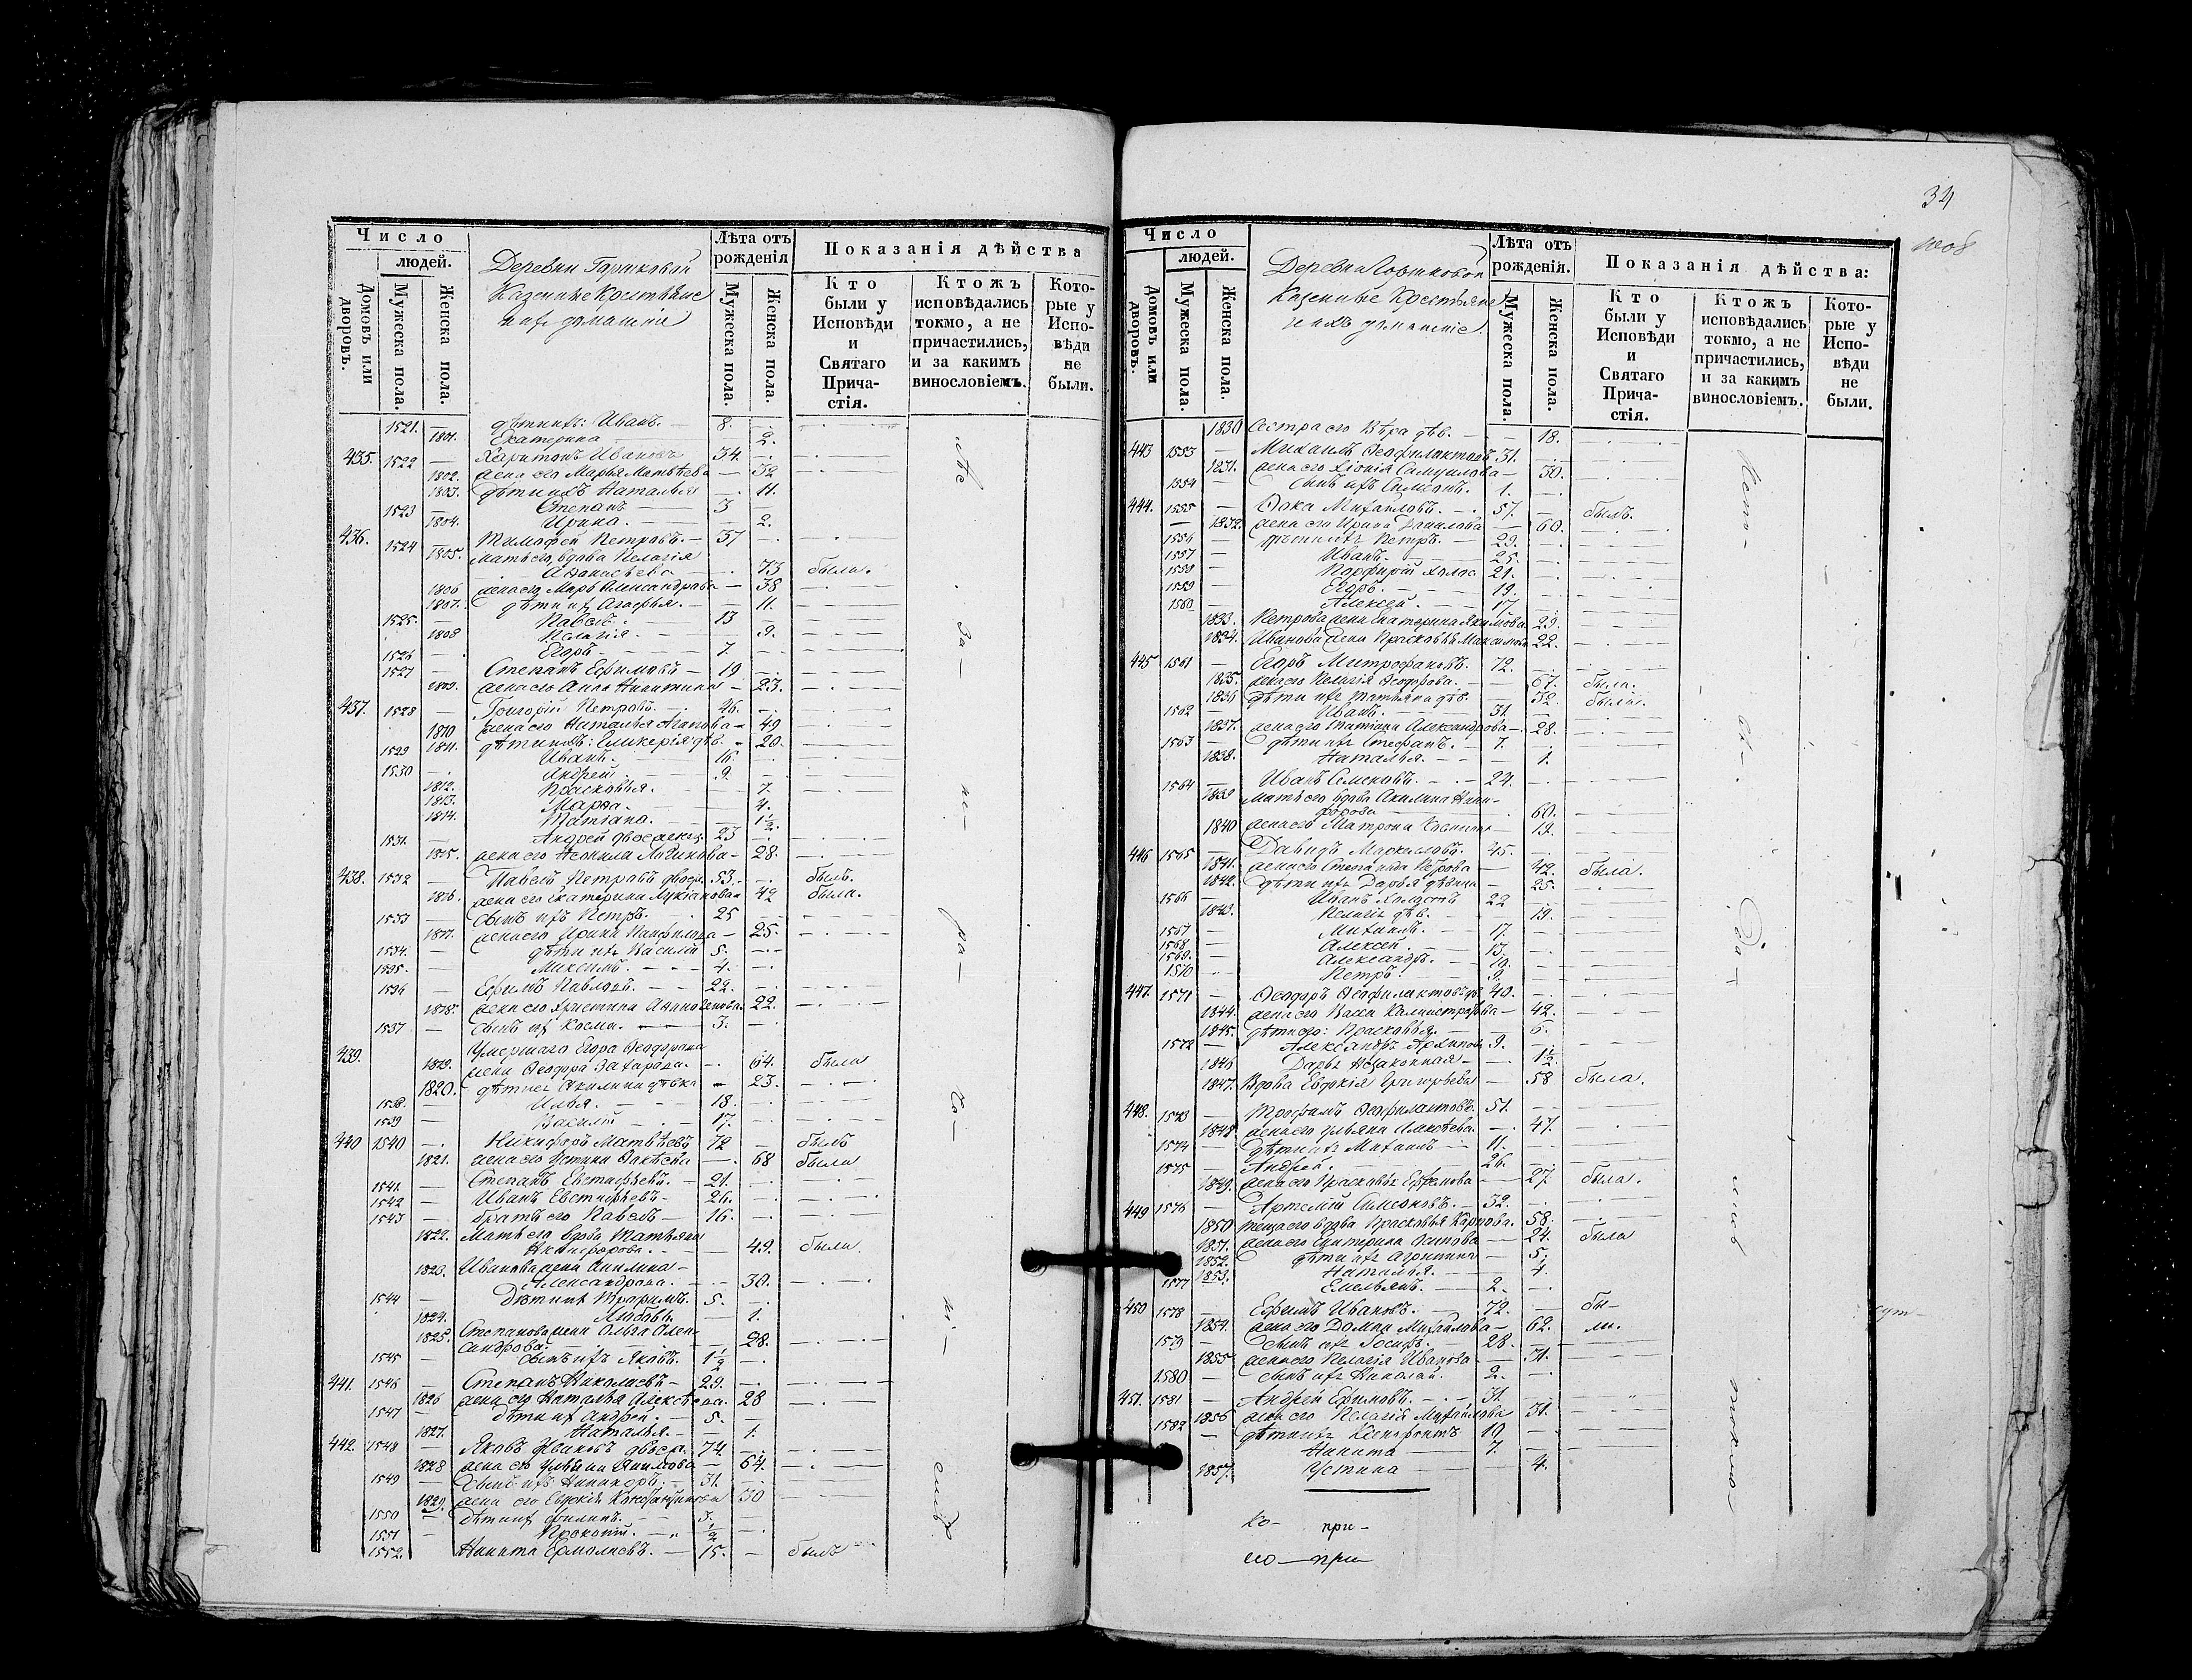 Число
людей.
Домовъ или дворовъ.
Мужеска пола.
Женска пола.
Деревни Горшковой
Казенные Крестьяне
и ихъ домашніе
Лѣта отъ рожденія
Мужеска пола.
Женска пола.
Показанія дѣйства
Кто были у Исповѣди и Святаго Причастія.
Ктожъ исповѣдались токмо, а не причастились, и за какимъ винословіемъ.
Которые у Исповѣди не были.
1521. — дѣти ихъ: Иванъ. — 8.
1801. Екатерина — 2.
435. 1522 — Харитонъ Ивановъ 34.
1802. жена его Марья Матвѣева — 32
1803. дѣти ихъ Наталья — 11.
1523 — Степанъ — 3
1804. Ирина. — 2.
436. 1524 Тимофей Петровъ. — 37
1805. Мать его, вдова Пелагія
73 была.
1806 жена его Марья Александрова — 38
1807. дѣти ихъ Агафья. — 11.
1525. — Павелъ. 13
1808 Пелагія. — 9.
1526 — Егоръ — 7.
1527 — Степанъ Ефимовъ — 19
1809. жена его Анна Никитина — 23.
437. 1528 — Григорій Петровъ. — 46.
1810 жена его Наталья Агапова — 49
1811. дѣти ихъ: Гликерія дѣв. — 20.
1529 Иванъ. 16.
1530 — Андрей 9.
1812. Прасковья. — 7.
1813. Марѳа. — 4.
1814. Татіана. — 1½.
1531. — Андрей 23
1815. жена его Неонила Логинова — 28.
438. 1532 — Павелъ Петровъ 53. был.
1816. жена его Екатерина Лукіанова 42 была.
1533 — сынъ ихъ Петръ. 25
1817. жена его Ирина Панфилова — 25.
1534. — дѣти ихъ Василій 5.
1535. — Максимъ. — 4.
1536 — Ефимъ Павловъ. — 22.
1818. жена его Христина 22.
1537 — сынъ их Косма. — 3.
439. Умершаго Егора Ѳеодорова
1819. жена Ѳеодора Захарова. — 64. была
1820. дѣти ихъ Акилина дѣвка — 23.
1538. — Илья. — 18.
1539 — Василій — 17.
440 1540 — Никифоръ Матвѣевъ 72 былъ
1821. жена его Устина — 68 была
1541. — Степанъ Евстафьевъ. — 21.
1542 — Иванъ Евстафьевъ — 26.
1543 — братъ его Павелъ — 16.
1822. Мать его вдова Татьяна
Никифорова. — 49. была.
1823. Иванова жена Акилина
Александрова. — 30.
1544 — Дѣти их Трофимъ. 5.
1824. Любовь. — 1.
1825. Степанова жена Ольга Алек-
сандрова: — 28.
1545 — сынъ ихъ Яковъ. 1½
441. 1546 — Степанъ Николаевъ — 29.
1826 жена его Наталья Алексѣева. 28
1547 — дѣти их Андрей. — 5.
1827. Наталья. — 1.
442. 1548 — Яковъ Ивановъ 74.
1828 жена его Ульяна Якимова — 64.
1549 — Сынъ ихъ Никаноръ. — 31.
1829. жена его Евдокія Константинова 30
1550 — дѣти их Филипъ. 3.
1551 — Прокопій. — ½
1552. Никита Ермолаевъ. — 15. — былъ
34
Число
людей.
Домовъ или дворовъ.
Мужеска пола.
Женска пола.
Деревни Горшковой
Казенные Крестьяне
и ихъ домашніе.
Лѣта отъ рожденія.
Мужеска пола.
Женска пола.
Показанія дѣйства:
Кто были у Исповѣди и Святаго Причастія.
Ктожъ исповѣдались токмо, а не причастились, и за какимъ винословіемъ.
Которые у Исповѣди не были.
1830 Сестра его Вѣра дѣв. — 18.
443 1553 — Михаилъ Ѳеофилактовъ 31.
1831. жена его Хіонія Самуилова — 30.
1554 — сынъ ихъ Симеонъ. 1.
444. 1555 — Ѳока Михайловъ. — 57. былъ.
1832. жена его Ирина Данилова — 60.
1556 — дѣти ихъ Петръ. — 29.
1557 — Иванъ. — 25.
1558 — Порфирій холос 21.
1559 Егоръ. — 19.
1560 — Алексей. — 17.
1833. Петрова жена Екатерина Якимова. 29.
1834. Иванова жена Прасковья Максимова 22.
445 1561 — Егоръ Митрофановъ. 72.
1835. жена его Пелагія Ѳеодорова. — 67. была.
1836 дѣти ихъ Татьяна дѣв. — 32. была.
1562 — Иванъ. — 31
1837. жена его Татіана Александрова — 28.
1563 — дѣти ихъ Стефанъ. — 7.
1838. Наталья. — 1.
1564 — Иванъ Семеновъ. — 24.
1839 мать его вдова Акилина Ники-
форова 60.
1840 жена его Матрона — 19.
446 1565 — Давидъ Маркеловъ. 45.
1841. жена его Степанида Петрова — 42. была.
1842. дѣти ихъ Дарья дѣвица — 25.
1566 — Иванъ холостъ 22
1843. Пелагія дѣв. — 19.
1567 — Михаилъ. — 17.
1568 — Алексей. — 13.
1569. — Александръ. — 10.
1570 Петръ. 9.
447. 1571 — Ѳеодоръ Ѳеофилактовъ 40.
1844. жена его Васса Калистратова — 42.
1845. дѣти его: Прасковья. — 6.
1572 — Александръ 9.
1846 Дарья Незаконная — 1½.
1847. Вдова Евдокія Григорьева — 58 была.
448. 1573 — Трофимъ Ѳеофилактовъ. 51.
1848. жена его Ульяна Алексѣева. — 47.
1574 — дѣти ихъ Михаилъ — 11.
1575 — Андрей. — 26.
1849. жена его Прасковья Ефремова — 27. была.
449 1576 — Артемій Симеоновъ. — 32.
1850 теща его вдова Прасковья Карпова. 58.
1851. жена его Катерина Осипова — 24. была
1852. дѣти ихъ Агрипина — 5.
1853. Наталья. — 4.
1577 Емельянъ. — 2.
450 1578 — Ефимъ Ивановъ. — 72. бы-
1854. жена его Домна Михайлова — 62. ли.
1579 — Сынъ ихъ Іосифъ. — 28.
1855 жена его Пелагія Иванова — 31.
1580 — сынъ ихъ Николай. 2.
451. 1581 — Андрей Ефимовъ. — 31.
1856 жена его Пелагія Михайлова 31.
1582 — дѣти ихъ Ксенофонтъ 10
Никита — 7.
1857. Устина — 4.
ко- при-
но — при